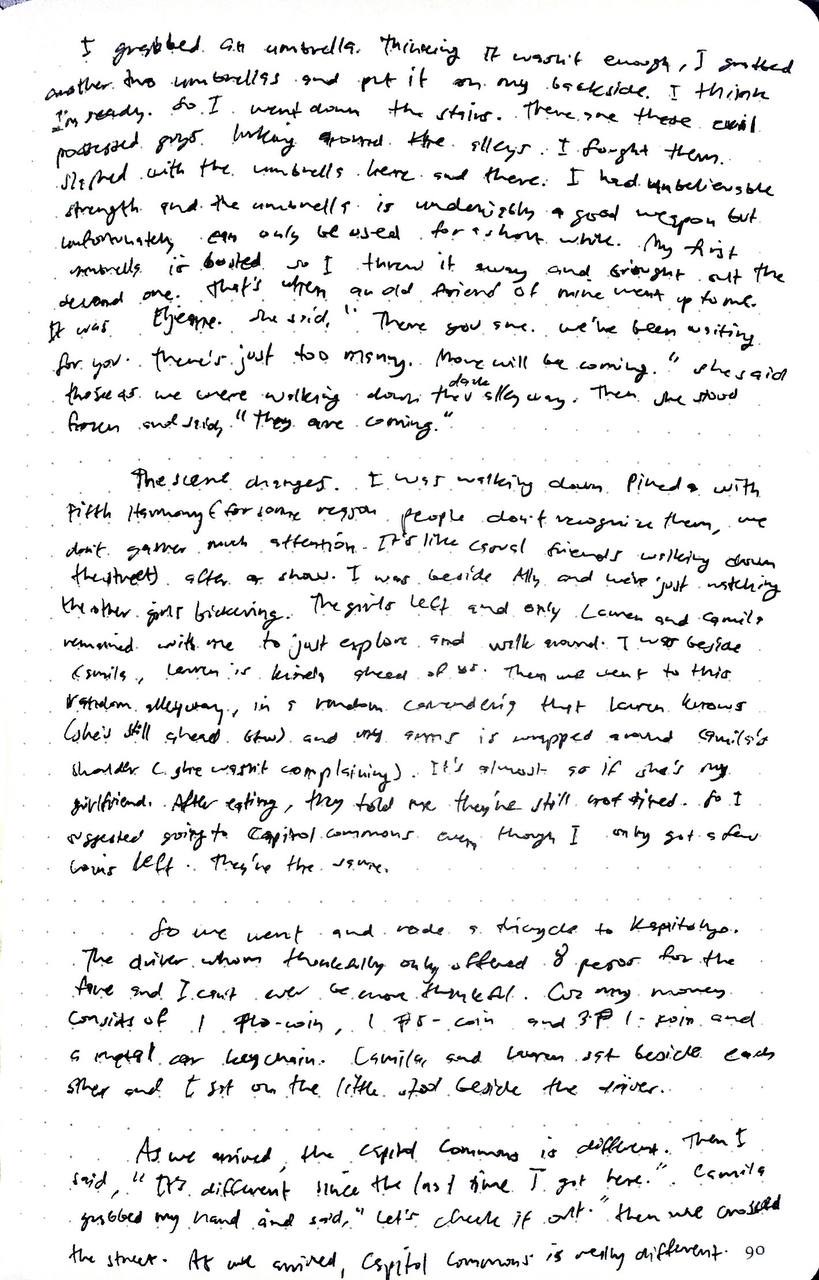 I grabbed an umbrella. Thinking it wasn't enough, I grabbed
another two umbrellas and put it on my backside. I think
I'm ready. So I went down the stairs. There are these evil
possessed guys lurking around the alleys. I fought them.
Slashed with the umbrella here and there. I had unbelievable
strength and the umbrella is undeniably a good weapon but
unfortunately can only be used for a short while. My first
umbrella is busted so I threw it away and brought out the
second one. That's when an old friend of mine went up to me.
It was She said, "There you are. We've been waiting
for you. There's just too many. More will be coming." She said
those as we were walking down the dark alleyway. Then she stood
frozen and said, "They are coming."
The scene changes. I was walking down Pineda with
Fifth Harmony (for some reason people don't recognize them, we
don't garner much attention. It's like casual friends walking down
the street) after a show. I was beside Ally and we're just watching
the other girls bickering. The girls left and only Lauren and Camila
remained with me to just explore and walk around. I was beside
Camila, Lauren is kinda ahead of us. Then we went to this
random alleyway, in a random carenderia that Lauren knows
(she's still ahead btw) and my arms is wrapped around Camila's
shoulder (she wasn't complaining). It's almost as if she's my
girlfriend. After eating, they told me they're still not tired. So I
suggested going to Capitol Commons even though I only got a few
coins left. They're the same.
So we went and rode a tricycle to Kapitolyo.
The driver whom thankfully only offered 8 pesos for the
fare and I can't ever be more thankful. Coz my money
consists of 1 ₱10-coin, 1 ₱5-coin and 3 ₱1-coin and
a metal car keychain. Camila and Lauren sat beside each
other and I sat on the little stool beside the driver.
As we arrived, the Capitol Commons is different. Then I
said, "It's different since the last time I got here." Camila
grabbed my hand and said, "Let's check it out." Then we crossed
the street. As we arrived, Capitol Commons is really different.
90